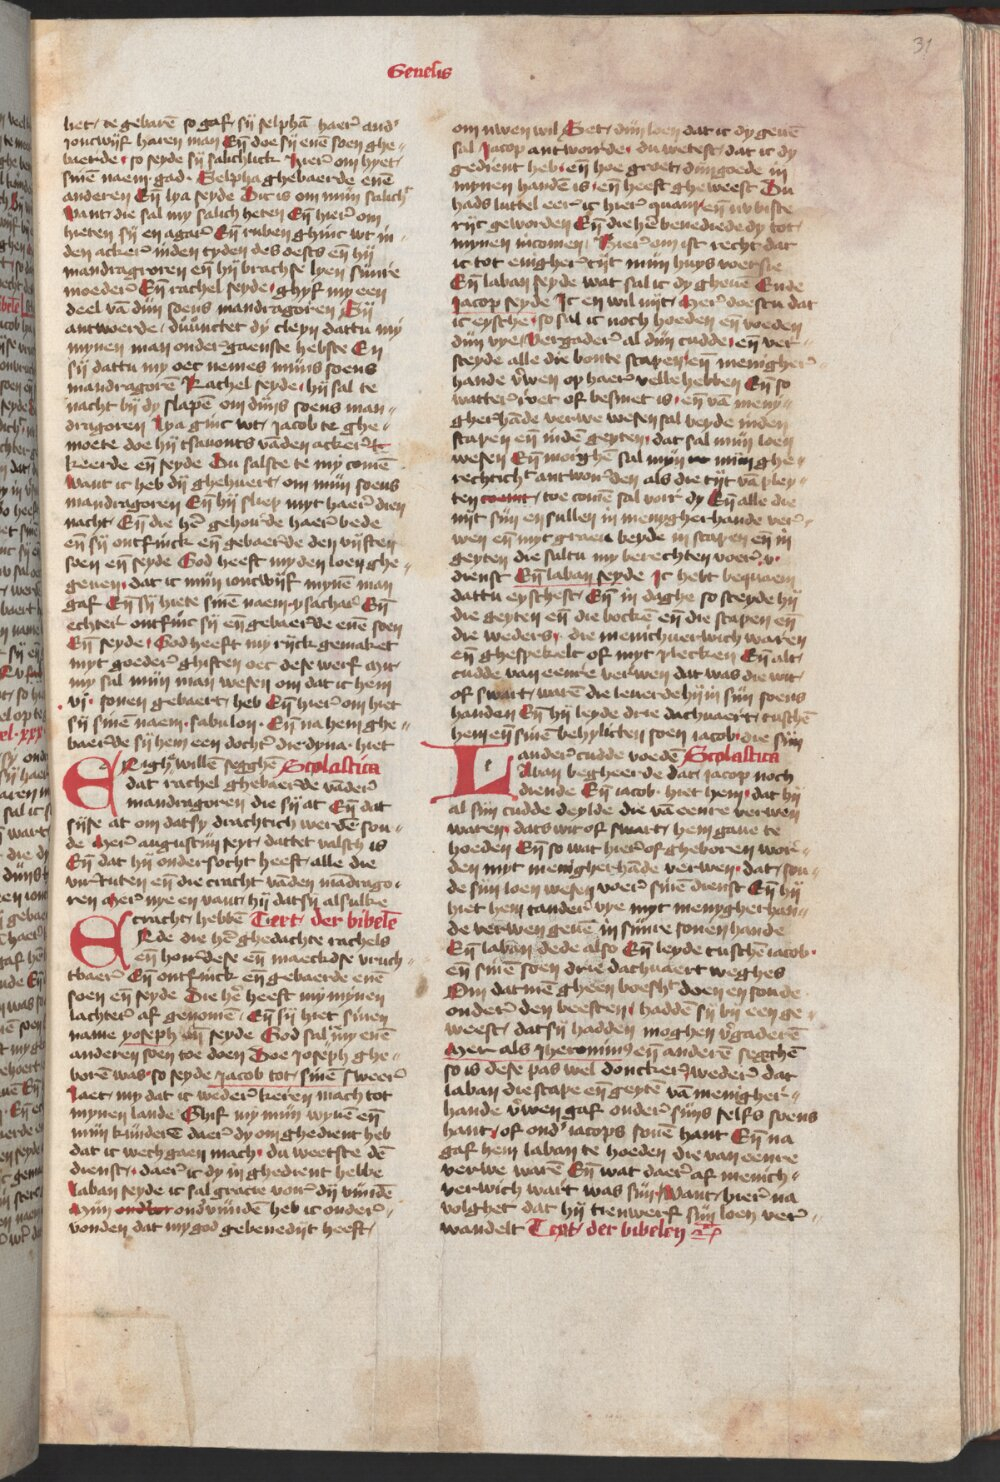 31
Genesis
liet te gebarē so gaf sij selphā haer and'
joncwijf haren man Eñ doe sij enē soen ghe⸗
baerde so seyde sij salichlick hier om hyet
sinē naem gad Selpha ghebaerde enē
anderen Eñ lya seyde Dit is om mijn salich
want die sal my salich heten Eñ hier om
hieten sij en ager Eñ ruben ghinc wt in⸗
den acker inden tyden des oests eñ hij
mandragroren eñ hij brachse lyen sijnre
moeder Eñ rachel seyde ghyf my een
deel vā dijn soens mandragoren Sij
antwoerde duunctet dy cleyn dattu my
mynen man onder gaenste hebste En
sij dattu my oec nemes mijns soens
mandragorē Rachel seyde hij sal te
nacht bij dy slapē om dijns soens man⸗
dragoren Lya ginc wt jacob te ghe⸗
moete doe hij tsavonts vāden acker
keerde eñ seyde Du salste te my comē
want ic heb dij ghehuert om mijn soens
mandragoren Eñ hij sliep myt haer dien
nacht Eñ die hē gehorde haer bede
eñ sij ontfinck eñ gebaerde den vijften
soen eñ seyde God heeft my den loen ghe⸗
geven dat ic mijn joncwijf mynē man
gaf Eñ sij hiete sinē naem ysachar Eñ
echter ontfinc sij eñ gebaerde enē soen
Eñ seyde God heeft my rijck gemaket
myt goeder ghiften oec dese werf mit
my sal mijn man wesen om dat ic hem
vj sonen gebaert heb Eñ hier om hiet
sij sinē naem sabulon Eñ na hem ghe⸗
baerde sij hem een dochter die dyna hiet
Enigh willē segghē Scolastica
dat rachel ghebaerde vāder
mandragoren die sij at Eñ dat
sijse at om datsy drachtich werdē sou⸗
de Mer augustijn seyt dattet valsch is
Eñ dat hij ondersocht heeft alle die
virtuten eñ die cracht vāden mādrago⸗
ren Mer nye en vant hij datsij alsulke
cracht hebbē Text der bibelē
Ede die hē ghedachte rachels
eñ hoordese eñ maeckdse vruch⸗
tbaer Eñ ontfinck eñ gebaerde enē
soen eñ seyde Die hē heeft my mynen
lachter af genomē Eñ sij hiet sinen
name yoseph eñ seyde God sal my enē
anderen soen toe doen Doe joseph ghe⸗
borē was so seyde jacob tot sinē sweer
Laet my dat ic weder keren mach tot
mynen lande Ghif my mijn wyve eñ
mijn kijnderē daer dy om ghedient heb
dat ic wech gaen mach du weetste dē
dienst daer ic dy in ghedient hebbe
Laban seyde ic sal gracie voir dij vijndē
Mijn ondvijnde heb ic onder⸗
vonden dat my god gebenedijt heeft
om uwen wil Set dijn loen dat ic dy gevē
sal Jacop antworde du wetest dat ic dy
gedient heb eñ hoe groet dijn goede in
mynen handē is eñ heeft gheweest Du
hads luttel eer ic hier quam eñ nv biste
rijc geworden Eñ die hē benediede dy tot
mynen incomen Hier om ist recht dat
ic tot enigher tijt mijn huys voersie
Eñ laban seyde wat sal ic dy ghevē Ende
jacop seyde Ic en wil nijt Mer doestu dat
ic eysche so sal ic noch hoeden eñ voeden
dijn vye Vergader al dijn cudde eñ ver⸗
steyde alle die bonte scapen eñ menigher
hande v̄wen op haer velle hebben Eñ so
watter root of besmet is eñ vā meny⸗
gher hāde verwe wesen sal beyde inden
scapen eñ indē geyten dat sal mijn loen
wesen Eñ morghē sal mijn ghe⸗
rechtich antworden als die tijt vā pley⸗
ten toe comē sal voir dy Eñ alle die
nijt sijn en sullen in menigherhande ver⸗
wen eñ myt graeu beyde in scapen eñ in
geyten die saltu my berechten voer v
dienst Eñ laban seyde Ic hebt bequaem
dattu eyschest Eñ in daghe so steyde hij
die geyten eñ die bockē eñ die scapen eñ
die weders die menichverwich waren
eñ ghespekelt of myt plecken Eñ alt
cudde van eenre verwen dat was die wit
of swart warē die leverde hij in sijn soens
handen Eñ hij leyde drie dachvaert tusschē
hem eñ sinē behylicten soen iacob die sijn
ander cudde voedē Scolastica
Laban begheerde dat jacop noch
diende Eñ iacob hiet hem dat hij
al sijn cudde deylde die vā eenre verwen
waren dats wit of swart hem gave te
hoeden Eñ so wat hier of gheboren wor⸗
den myt menigherhāde verwen dat sou⸗
de sijn loen wesen voer sinē dienst Eñ hij
hiet hem tander vye myt menygher han⸗
de verwen gevē in sijnre sonen hande
Eñ laban dede also Eñ leyde tusschē iacob
eñ sinē soen drie dachvaert weghes
Om datmē gheen boesheit doen en soude
onder den beesten haddē sij bij een ge⸗
weest datsij hadden moghen v̄gaderē
Mer als jheronim9 eñ anderē segghē
so is dese pas wel doncker weder dat
laban die scape eñ geytē vā menigher⸗
hande v̄wen gaf onder sijns selfs soens
hant of ond' iacops sonē hant Eñ na
gaf hem laban te hoeden die van eenre
verwe warē Eñ wat daer af menich⸗
verwich wart was sijn Want hier na
volghet dat hij tienwerf sijn loen ver⸗
wandelt Text der bibelen